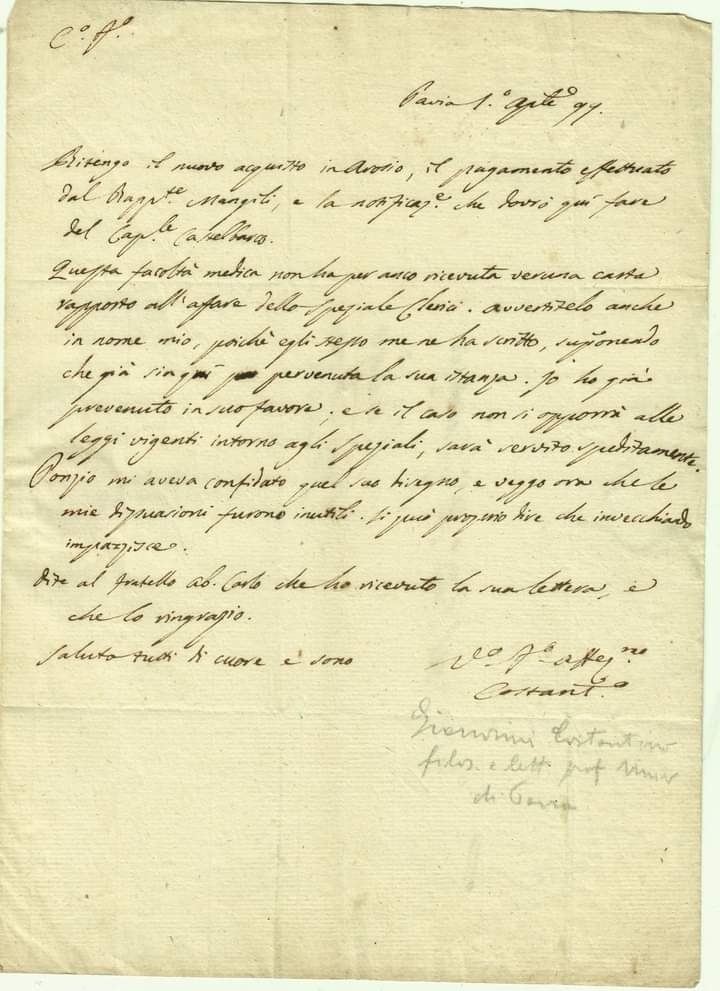 C.º F.º
Pavia 1.º 99.
Ritengo il nuovo acquisto in Arosio, il pagamento effettuato
dal Rapp.te Mangili, e la notificaz.e che dovrò quì fare
del Cap.le Castelbarco.
Questa facoltà medica non ha per anco ricevuta veruna carta
rapporto all'affare dello speziale Clerici. Avvertitelo anche
in nome mio, poichè egli stesso me ne ha scritto, supponendo
che già sia quì pervenuta la sua istanza. Io ho già
prevenuto in suo favore; e se il caso non si opporrà alle
leggi vigenti intorno agli speziali, sarà servito speditamente.
Ponzio mi aveva confidato quel suo disegno, e veggo ora che le
mie dissuasioni furono inutili. Si può proprio dire che invecchiando
impazzisce.
Dite al fratello Ab. Carlo che ho ricevuto la sua lettera, e
che lo ringrazio.
Saluto tutti di cuore e sono
V.º F.º affez.mo
Costant.º
Costantino
filos. e lett. prof Univ
di Pavia